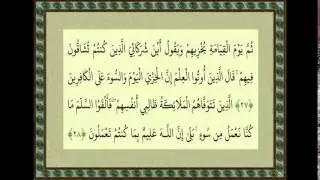 ثُمَّ يَوْمَ الْقِيَامَةِ يُخْزِيهِمْ وَيَقُولُ أَيْنَ شُرَكَائِيَ الَّذِينَ كُنتُمْ تُشَاقُّونَ
فِيهِمْ قَالَ الَّذِينَ أُوتُوا الْعِلْمَ إِنَّ الْخِزْيَ الْيَوْمَ وَالسُّوءَ عَلَى الْكَافِرِينَ
﴿٢٧﴾ الَّذِينَ تَتَوَفَّاهُمُ الْمَلَائِكَةُ ظَالِمِي أَنفُسِهِمْ فَأَلْقَوُا السَّلَمَ مَا
كُنَّا نَعْمَلُ مِن سُوءٍ بَلَىٰ إِنَّ اللَّـهَ عَلِيمٌ بِمَا كُنتُمْ تَعْمَلُونَ ﴿٢٨﴾